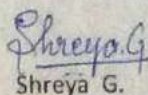 Shreya.G
Shreya G.